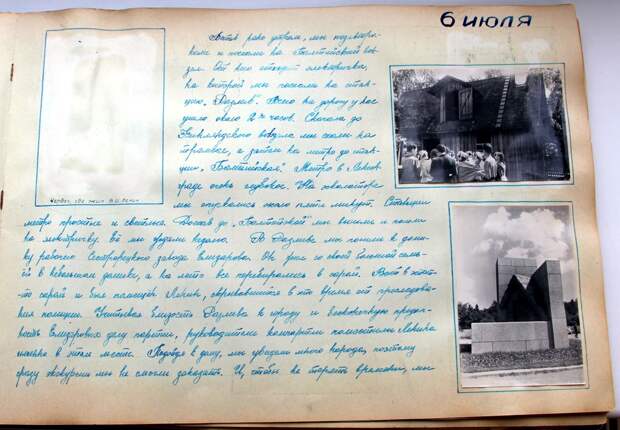 6 июля
Встав рано утром, мы позавтра-
кали и поехали на Балтийский вок-
зал. От него отходит электричка,
на которой мы поехали на стан-
цию „Разлив“. Всего на дорогу у нас
ушло около 2-х часов. Сначала до
Финляндского вокзала мы ехали на
трамвае, а затем на метро до стан-
ции „Балтийская“. Метро в Ленин-
граде очень глубокое. На эскалаторе
мы опускались около пяти минут. Станции
метро простые и светлые. Доехав до „Балтийской“ мы вышли и пошли
на электричку. Её мы ждали недолго. В Разливе мы пошли к доми-
ку рабочего Сестрорецкого завода Емельянова. Он жил со своей большой семь-
ёй в небольшом домике, а на лето все перебирались в сарай. Вот в этот-
то сарай и был помещён Ленин, скрывавшийся в это время от преследова-
ния полиции. Учитывая близость Разлива к городу и бесконечную предан-
ность Емельянова делу партии, руководители конспиративно поместили Ленина
именно в этом месте. Подойдя к дому, мы увидели много народа, поэтому
сразу экскурсии мы не смогли заказать. И, чтобы не терять времени, мы
где жил В.И. Ленин